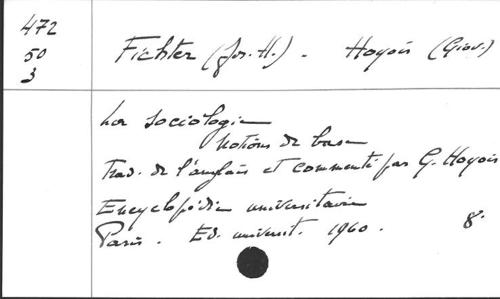 472
50
3
Fichter (Jos. H.) - Hoyois (Giov.)
La sociologie
Notions de base
Trad. de l'anglais et commenté par G. Hoyois
Encyclopédie universitaire
Paris. Ed. universit. 1960. 8°